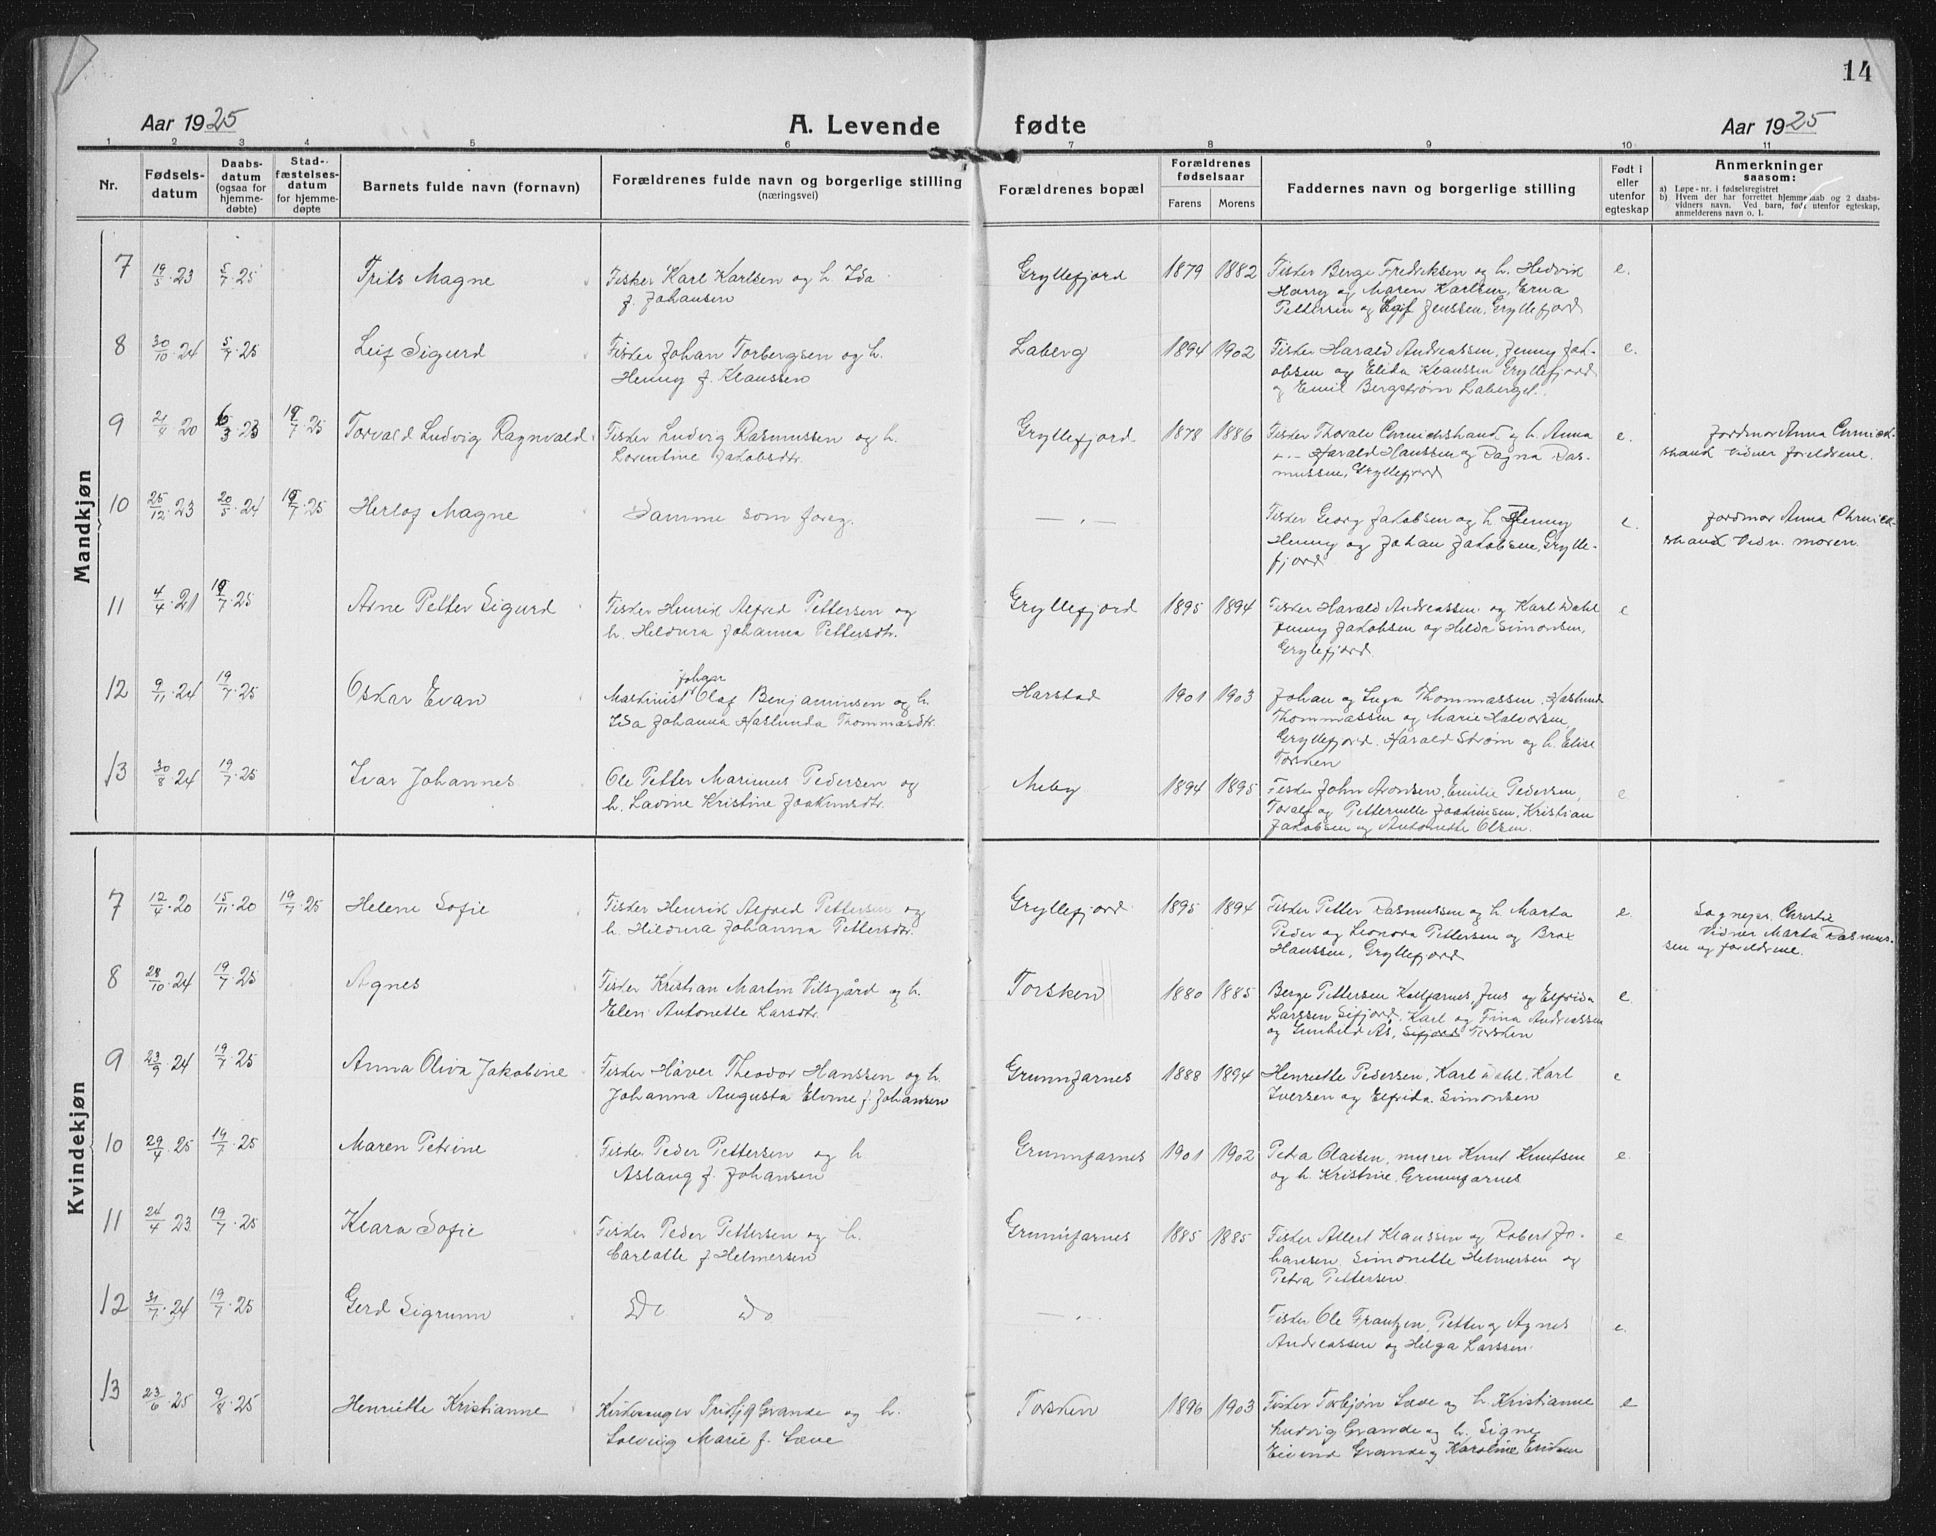 14
Aar 1925 A. Levende fødte Aar 1925
1 2 3 4 5 6 7 8 9 10 11
Nr. Fødselsdatum Daabsdatum (ogsaa for hjemmedøbte) Stadfæstelsesdatum for hjemmedøpte Barnets fulde navn (fornavn) Forældrenes fulde navn og borgerlige stilling (næringsvei) Forældrenes bopæl Forældrenes fødselsaar Farens Morens Faddernes navn og borgerlige stilling Født i eller utenfor egteskap Anmerkninger saasom:
a) Løpe-nr. i fødselsregistret
b) Hvem der har forrettet hjemmedaab og 2 daabsvidners navn. Ved barn, født utenfor egteskap, anmelderens navn o. l.
Mandkjøn
7 19/5·23 5/7·25 Frits Magne Fisker Karl Karlsen og h. Ida Gryllefjord 1879 1882 Fisker Berge Fredriksen og h. Hedvik e.
f. Johansen Harry og Maren Karlsen, Erna
Pettersen og Jenssen, Gryllefjord
8 30/10·24 5/7·25 Leif Sigurd Fisker Johan Torbergsen og h. Laberg 1894 1902 Fisker Harald Andreassen, Jenny Jak- e.
Henny f. Klaussen obsen og Elida Klaussen Gryllefjord
og Emil Bergstrøm Laberget.
9 21/4 20 6/3·23 19/7·25 Torvald Ludvig Ragnvald Fisker Ludvig Rasmussen og h. Gryllefjord 1878 1886 Fisker og h. Anna e. Jordmor Anna
Lorentine Jakobsdtr. Harald Hanssen og Dagna Ras- Vidner foreldrene.
mussen, Gryllefjord
10 25/12·23 20/5·24 19/7·25 Herlof Magne Samme som foreg. — „ — Fisker Georg Jakobsen og h. Jenny e. Jordmor Anna
Henny og Johan Jakobsen, Grylle- Vidn. moren.
fjord
11 4/4·21 19/7·25 Arne Petter Sigurd Fisker Henrik Alfred Pettersen og Gryllefjord 1895 1894 Fisker Harald Andreassen og Karl Dahl e
h. Hildura Johanna Pettersdtr. Jenny Jakobsen og Hilda Simonsen,
Gryllefjord.
12 9/11·24 19/7·25 Oskar Evan Maskinist Johan Olaf Benjaminsen og h. Harstad 1901 1903 Johan og Inga Thommassen, Haslunda
Ida Johanna Haslunda Thommasdtr. Thommassen og Marie Halvorsen
Gryllefjord. Harald Strøm og h. Elise
Torsken
13 30/8·24 19/7·25 Ivar Johannes Ole Petter Marinius Pedersen og Meby 1894 1895 Fisker John Aronsen, Emilie Pedersen, e
h. Lavine Kristine Joakimsdtr. Toralf og Petternelle Joakimsen, Kristian
Jakobsen og Antonette Olsen.
Kvindekjøn
7 12/4·20 15/11·20 19/7·25 Helene Sofie Fisker Henrik Alfred Pettersen og Gryllefjord 1895 1894 Fisker Petter Rasmussen og h. Marta e. Sognepr. Christie
h. Hildura Johanna Pettersdtr. Peder og Leonora Pettersen og Vidner Marta Rasmus-
Hanssen, Gryllefjord sen og foreldrene.
8 28/10·24 19/7·25 Agnes Fisker Kristian Martin Vilsgård og h. Torsken 1880 1885 Berge Pettersen Kalfjarnes, Jens og Elfrida e.
Elen Antonette Larsdtr. Larssen Sifjord, Karl og Fina Andreassen
og Gunhild As, Sifjord Torsken
9 23/9·24 19/7·25 Anna Oliva Jakobine Fisker Håver Theodor Hanssen og h. Grunnfarnes 1888 1894 Henriette Pedersen, Karl Dahl, Karl e
Johanna Augusta Elvine f. Johansen Iversen og Elfrida Simonsen
10 29/4·25 19/7·25 Maren Petrine Fisker Peder Pettersen og h Grunnfarnes 1901 1902 Petra Olaisen, murer Knut Knutsen e.
Aslaug f. Johansen og h. Kristine, Grunnfarnes
11 24/4 23 19/7·25 Klara Sofie Fisker Peder Pettersen og h. Grunnfarnes 1885 1885 Fisker Albert Klaussen og Robert Jo- e
Carlotte f. Helmersen hansen, Simonette Helmersen og
Petra Pettersen
12 31/7·24 19/7·25 Gerd Sigrunn Do Do — „ — Fisker Ole Frantzen, Petter og Agnes e.
Andreassen og Helga Larssen.
13 23/6·25 9/8·25 Henriette Kristianne Kirkesanger Grande og h. Torsken 1896 1903 Fisker Torbjørn Læve og h. Kristianne e
Solveig Marie f. Læve Ludvig Grande og h. Signe
Eivind Grande og Karoline